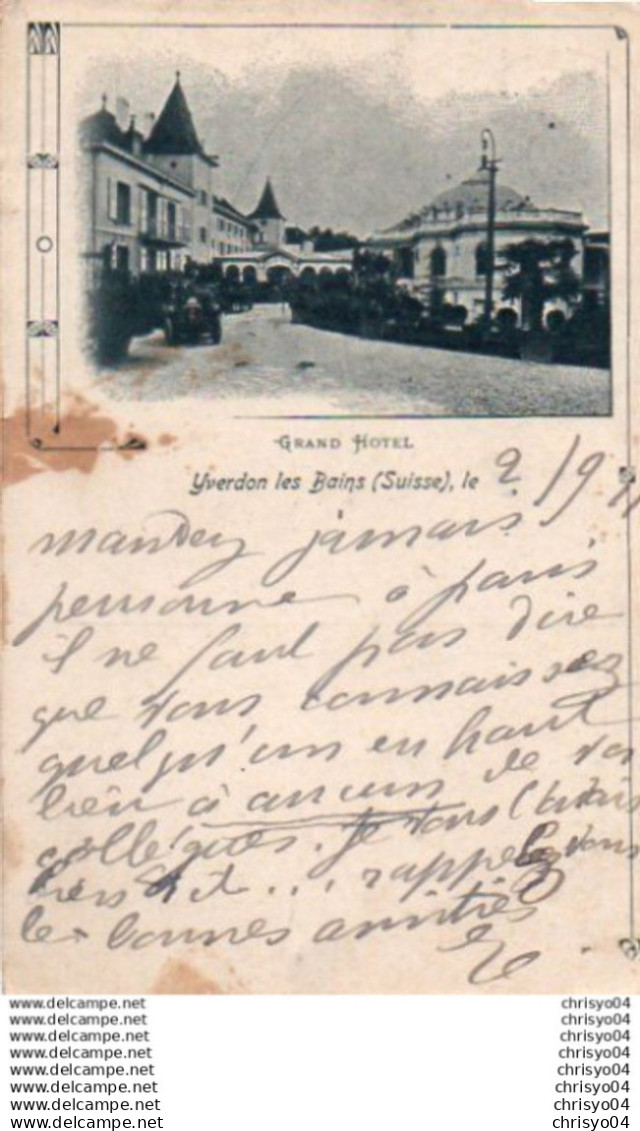 GRAND HOTEL
Yverdon les Bains (Suisse), le 2/9
mandez jamais
personne à paris
il ne faut pas dire
que vous connaissez
quelqu'un en haut
lieu à aucun de vos
collègues. Je vous l'avais
bien dit... rappelez vous
les bonnes amitiés
www.delcampe.net chrisyo04
www.delcampe.net chrisyo04
www.delcampe.net chrisyo04
www.delcampe.net chrisyo04
www.delcampe.net chrisyo04
www.delcampe.net chrisyo04
www.delcampe.net chrisyo04
www.delcampe.net chrisyo04